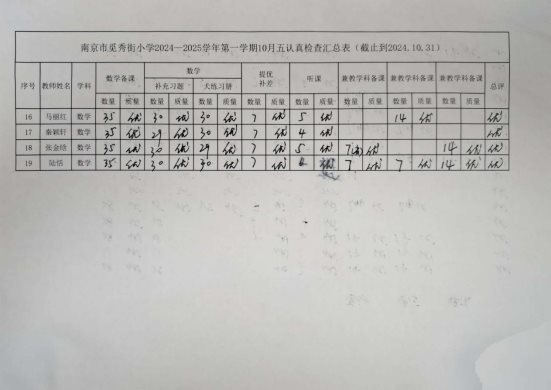 南京市觅秀街小学2024—2025学年第一学期10月五认真检查汇总表（截止到2024.10.31）
序号 教师姓名 学科 数学备课 数学 提优补差 听课 兼教学科备课 兼教学科备课 兼教学科备课 总评
补充习题 大练习册
数量 质量 数量 质量 数量 质量 数量 质量 数量 质量 数量 质量 数量 质量 数量 质量
16 马丽红 数学 35 优 30 优 30 优 7 优 5 优 14 优 优
17 秦颖轩 数学 35 优 29 优 30 优 7 优 4 优 优
18 张金晗 数学 35 优 30 优 29 优 7 优 5 优 7 优 14 优 优
19 陆恬 数学 35 优 30 优 30 优 7 优 优 7 优 7 优 14 优 优